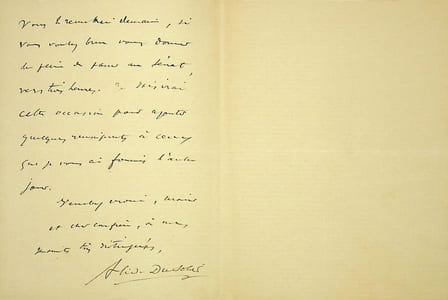 vous le remettrai demain, si
vous voulez bien vous donner
la peine de passer au Sénat,
vers trois heures. Je saisirai
cette occasion pour ajouter
quelques renseignements à ceux
que je vous ai fournis l'autre
jour.
Veuillez croire, Monsieur
et cher confrère, à mes
sentiments très distingués,